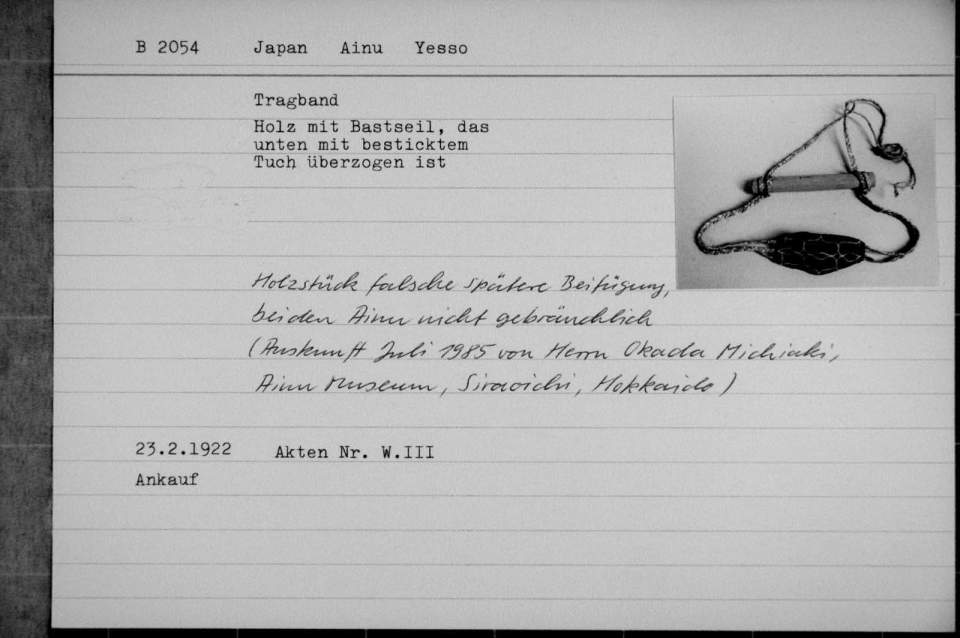 B 2054 Japan Ainu Yesso
Tragband
Holz mit Bastseil, das
unten mit besticktem
Tuch überzogen ist
Holzstück falsche spätere Beifügung,
bei den Ainu nicht gebräuchlich
(Auskunft Juli 1985 von Herrn Okada Michiaki,
Ainu Museum, Siraoichi, Hokkaido)
23.2.1922 Akten Nr. W.III
Ankauf